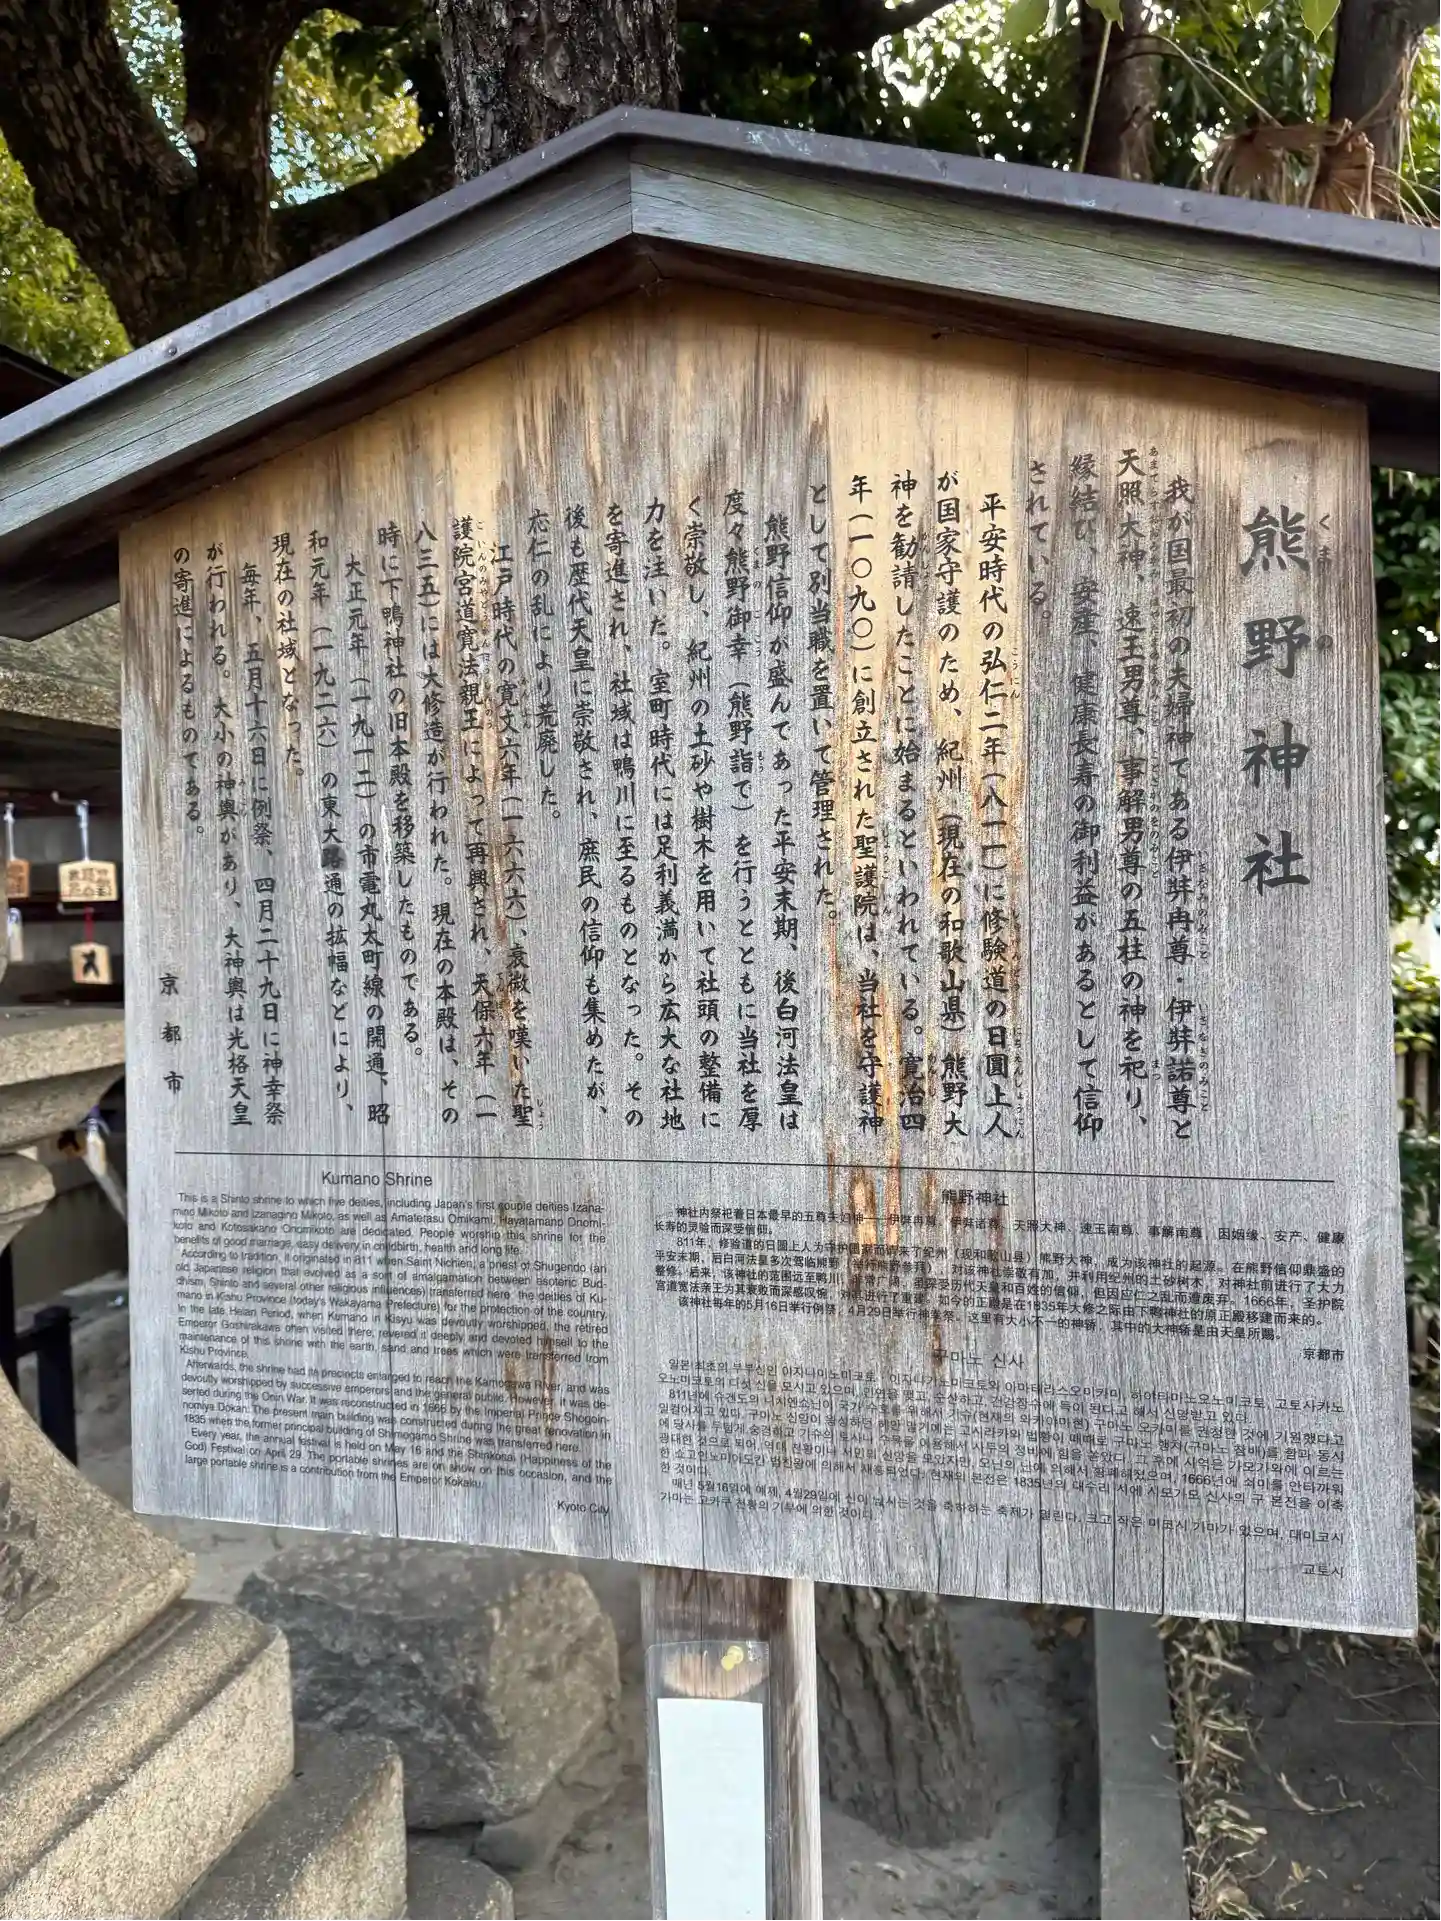 熊野神社
くまの
我が国最初の夫婦神である伊弉冉尊・伊弉諾尊と
天照大神、速玉男尊、事解男尊の五柱の神を祀り、
縁結び、安産、健康長寿の御利益があるとして信仰
されている。
平安時代の弘仁二年(八一一)に修験道の日圓上人
が国家守護のため、紀州(現在の和歌山県)熊野大
神を勧請したことに始まるといわれている。寛治四
年(一〇九〇)に創立された聖護院は、当社を守護神
として別当職を置いて管理された。
熊野信仰が盛んであった平安末期、後白河法皇は
度々熊野御幸(熊野詣で)を行うとともに当社を厚
く崇敬し、紀州の土砂や樹木を用いて社頭の整備に
力を注いだ。室町時代には足利義満から広大な社地
を寄進され、社域は鴨川に至るものとなった。その
後も歴代天皇に崇敬され、庶民の信仰も集めたが、
応仁の乱により荒廃した。
江戸時代の寛文六年(一六六六)、衰微を嘆いた聖
護院宮道寛法親王によって再興され、天保六年(一
八三五)には大修造が行われた。現在の本殿は、その
時に下鴨神社の旧本殿を移築したものである。
大正元年(一九一二)の市電丸太町線の開通、昭
和元年(一九二六)の東大路通の拡幅などにより、
現在の社域となった。
毎年、五月十六日に例祭、四月二十九日に神幸祭
が行われる。大小の神輿があり、大神輿は光格天皇
の寄進によるものである。
京都市
Kumano Shrine
This is a Shinto shrine to which five deities, including Japan's first couple deities Izana-
mino Mikoto and Izanagino Mikoto, as well as Amaterasu Omikami, Hayatamano Onomi-
koto and Kotosakano Onomikoto are dedicated. People worship this shrine for the
benefits of good marriage, easy delivery in childbirth, health and long life.
According to tradition, it originated in 811 when Saint Nichien, a priest of Shugendo (an
old Japanese religion that evolved as a sort of amalgamation between esoteric Bud-
dhism, Shinto and several other religious influences) transferred here the deities of Ku-
mano in Kishu Province (today's Wakayama Prefecture) for the protection of the country.
In the late Heian Period, when Kumano in Kisyu was devoutly worshipped, the retired
Emperor Goshirakawa often visited there, revered it deeply and devoted himself to the
maintenance of this shrine with the earth, sand and trees which were transferred from
Kishu Province.
Afterwards, the shrine had its precincts enlarged to reach the Kamogawa River, and was
devoutly worshipped by successive emperors and the general public. However, it was de-
serted during the Onin War. It was reconstructed in 1666 by the Imperial Prince Shogoin-
nomiya Dokan. The present main building was constructed during the great renovation in
1835 when the former principal building of Shimogamo Shrine was transferred here.
Every year, the annual festival is held on May 16 and the Shinkosai (Happiness of the
God) Festival on April 29. The portable shrines are on show on this occasion, and the
large portable shrine is a contribution from the Emperor Kokaku.
Kyoto City
熊野神社
神社内祭祀着日本最早的五尊夫妇神——伊弉冉尊、伊弉诺尊、天照大神、速玉南尊、事解南尊，因姻缘、安产、健康
长寿的灵验而深受信仰。
811年，修验道的日圆上人为守护国家而请来了纪州（现和歌山县）熊野大神，成为该神社的起源。在熊野信仰鼎盛的
平安末期，后白河法皇多次驾临熊野（举行熊野参拜），对该神社崇敬有加，并利用纪州的土砂树木，对神社前进行了大力
整修。后来，该神社的范围远至鸭川，虽深受历代天皇和百姓的信仰，但因应仁之乱而遭废弃。1666年，圣护院
宫道宽法亲王为其衰败而深感叹惋，对其进行了重建。如今的正殿是在1835年大修之际由下鸭神社的原正殿移建而来的。
该神社每年的5月16日举行例祭，4月29日举行神幸祭。这里有大小不一的神轿，其中的大神轿是由天皇所赐。
京都市
구마노 신사
일본 최초의 부부신인 이자나미노미코토・이자나기노미코토와 아마테라스오미카미, 하야타마노오노미코토, 고토사카노
오노미코토의 다섯 신을 모시고 있으며, 인연을 맺고, 순산하고, 건강장수에 득이 된다고 해서 신앙받고 있다.
811년에 슈겐도의 니치엔쇼닌이 국가 수호를 위해서 기슈(현재의 와카야마현) 구마노 오카미를 권청한 것에 기원했다고
교토시